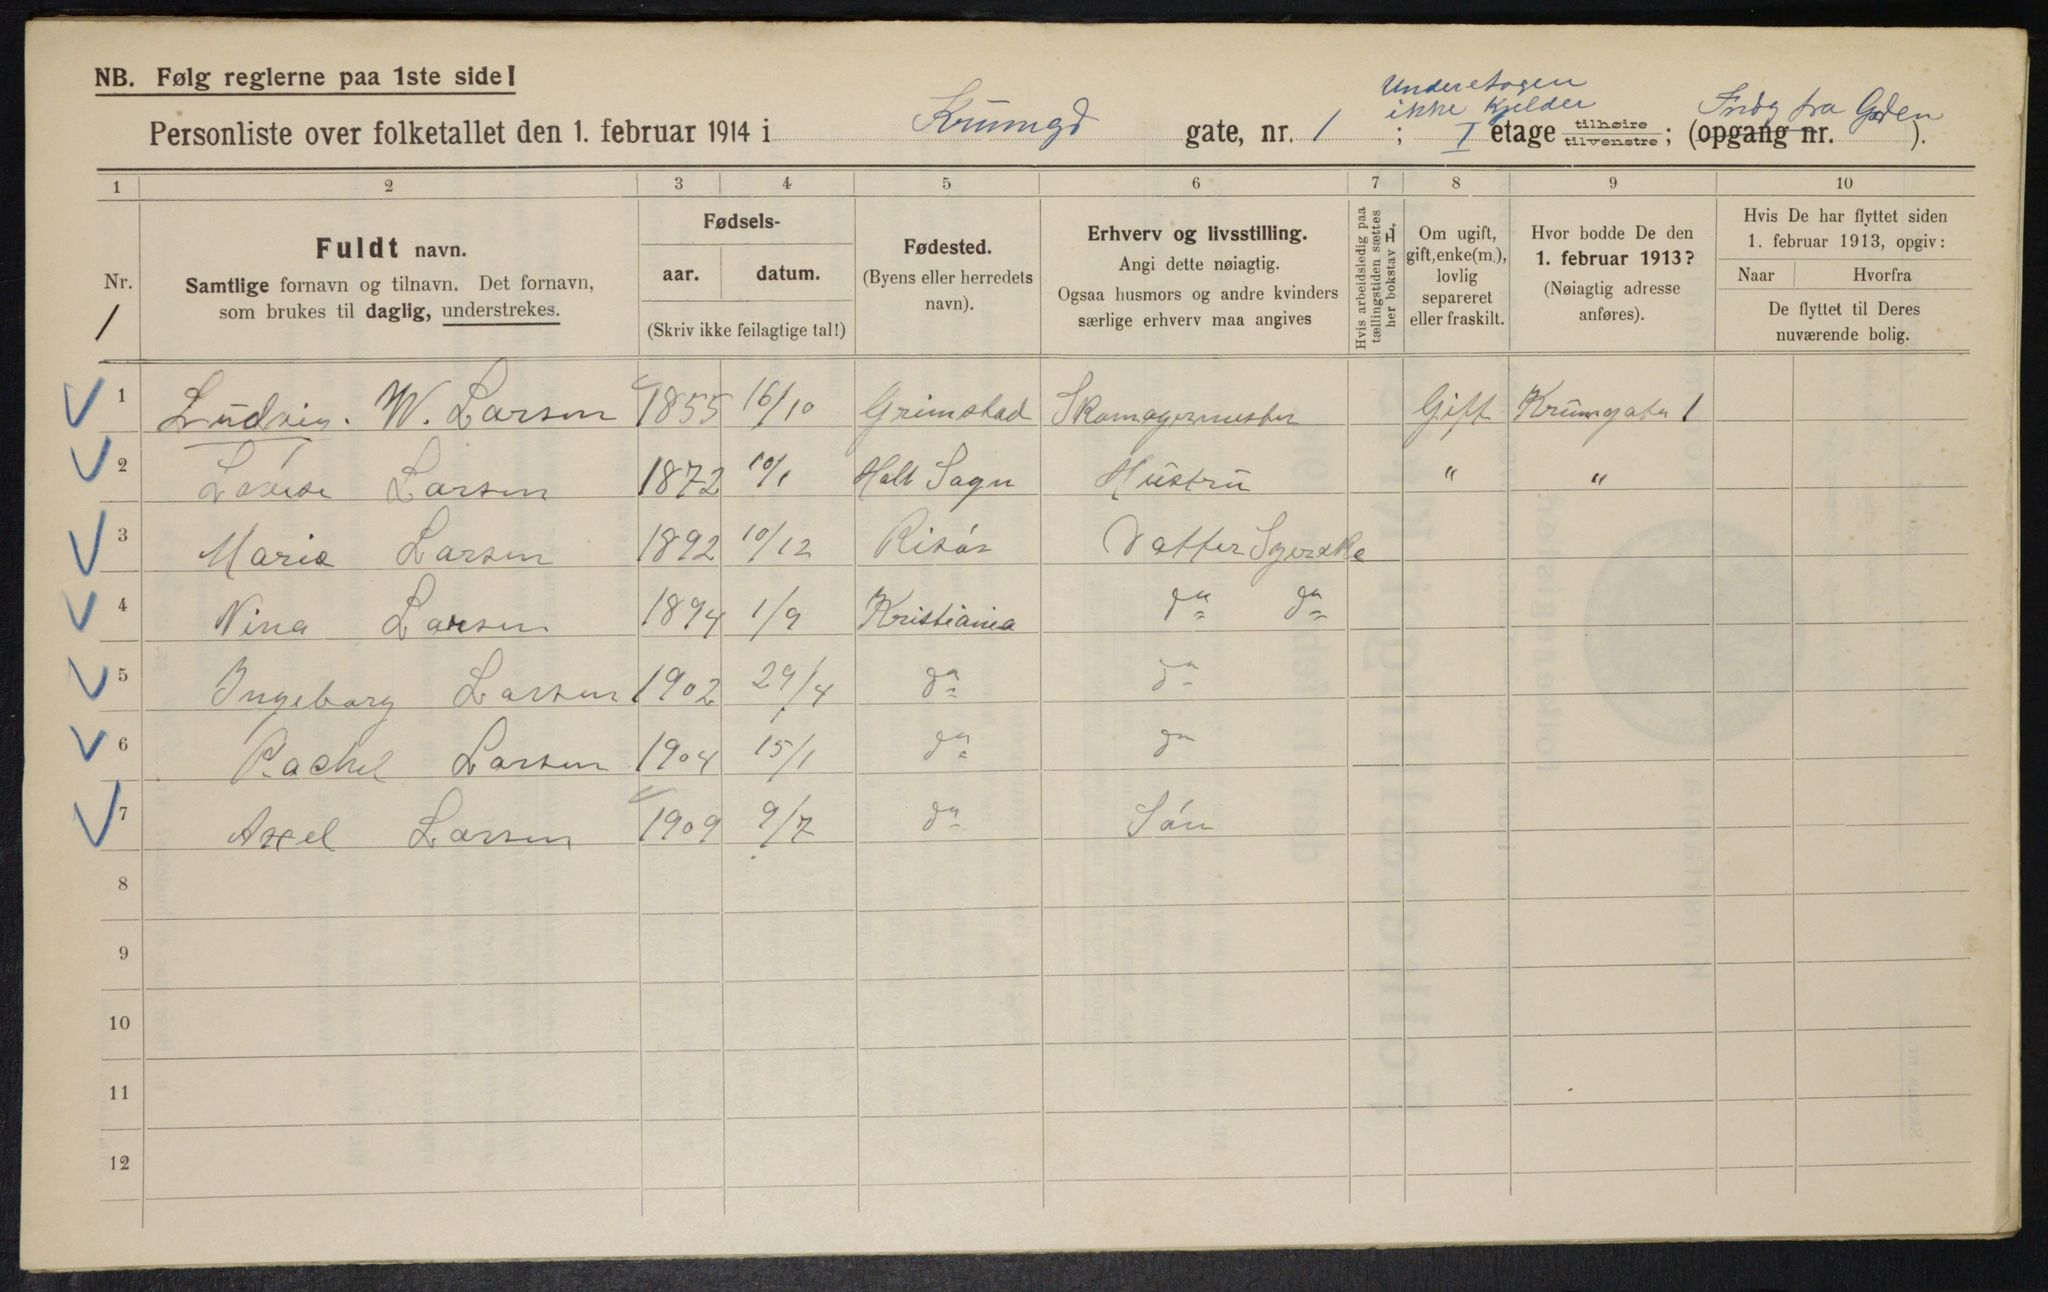 NB. Følg reglerne paa 1ste side!
Underetagen
ikke Kjelder
Personliste over folketallet den 1. februar 1914 i Krumgd gate, nr. 1 ; I etage tilhøire tilvenstre; (opgang nr. Indg fra Gaden ).
1 2 3 4 5 6 7 8 9 10
Nr.
1
Fuldt navn.
Samtlige fornavn og tilnavn. Det fornavn,
som brukes til daglig, understrekes.
Fødsels-
aar. datum.
(Skriv ikke feilagtige tal!)
Fødested.
(Byens eller herredets
navn).
Erhverv og livsstilling.
Angi dette nøiagtig.
Ogsaa husmors og andre kvinders
særlige erhverv maa angives
Hvis arbeidsledig paa
tællingstiden sættes
her bokstav L.
Om ugift,
gift, enke(m.),
lovlig
separeret
eller fraskilt.
Hvor bodde De den
1. februar 1913?
(Nøiagtig adresse
anføres).
Hvis De har flyttet siden
1. februar 1913, opgiv:
Naar Hvorfra
De flyttet til Deres
nuværende bolig.
1 Ludvig. W. Larsen 1855 16/10 Grimstad Skomagermester Gift Krumgaten 1
2 Lovise Larsen 1872 10/1 Holt Sogn Hustru " "
3 Maria Larsen 1892 10/12 Risør Datter Syerske
4 Nina Larsen 1894 1/9 Kristiania do do
5 Ingeborg Larsen 1902 29/4 do do
6 Rachel Larsen 1904 15/1 do do
7 Axel Larsen 1909 9/7 do Søn
8
9
10
11
12